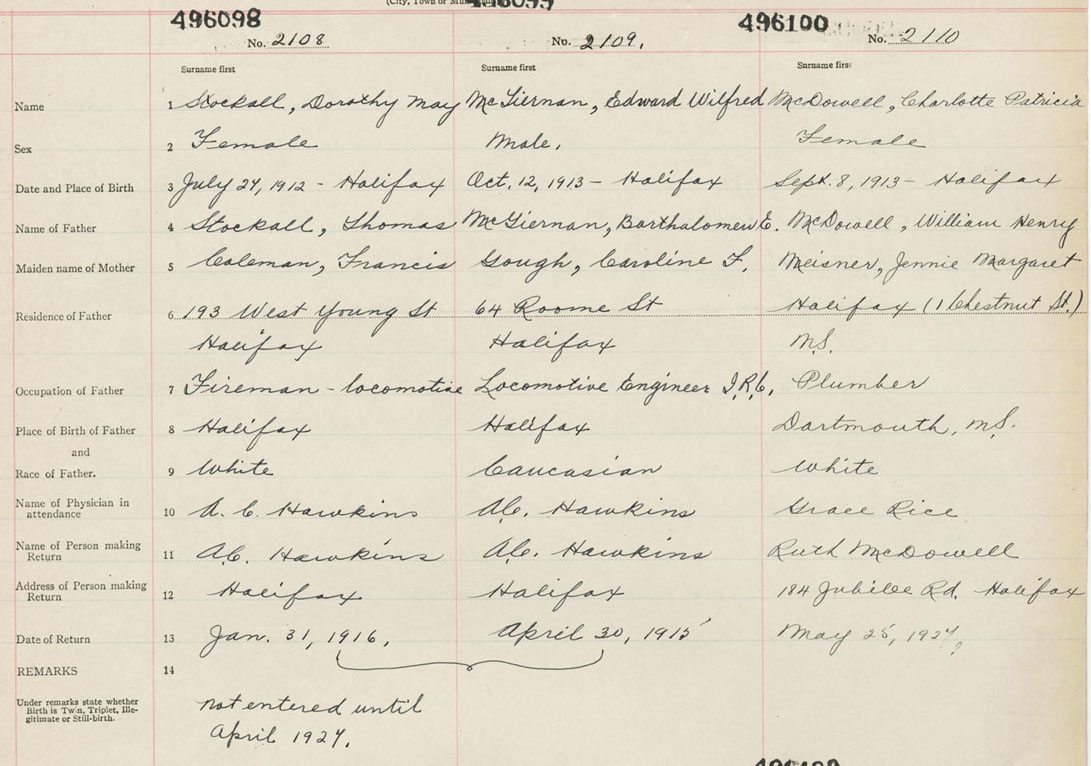 (City, Town or Mun
496098 496099 496100
No. 2108 No. 2109. No. 2110
Surname first Surname first Surname first
Name 1 Stockall, Dorothy May McTiernan, Edward Wilfred McDowell, Charlotte Patricia
Sex 2 Female Male. Female
Date and Place of Birth 3 July 27, 1912 - Halifax Oct. 12, 1913 - Halifax Sept. 8, 1913 - Halifax
Name of Father 4 Stockall, Thomas McTiernan, Bartholomew E. McDowell, William Henry
Maiden name of Mother 5 Coleman, Francis Gough, Caroline F. Meisner, Jennie Margaret
Residence of Father 6 193 West Young St 64 Roome St Halifax (1 Chestnut St.)
Halifax Halifax N.S.
Occupation of Father 7 Fireman - locomotive Locomotive Engineer I.R.C. Plumber
Place of Birth of Father 8 Halifax Halifax Dartmouth, N.S.
and
Race of Father. 9 White Caucasian White
Name of Physician in
attendance 10 A. C. Hawkins A.C. Hawkins Grace Rice
Name of Person making
Return 11 A.C. Hawkins A.C. Hawkins Ruth McDowell
Address of Person making
Return 12 Halifax Halifax 184 Jubilee Rd. Halifax
Date of Return 13 Jan. 31, 1916. April 30, 1915 May 25, 1927.
REMARKS 14
Under remarks state whether
Birth is Twin, Triplet, Ille-
gitimate or Still-birth.
not entered until
April 1927.